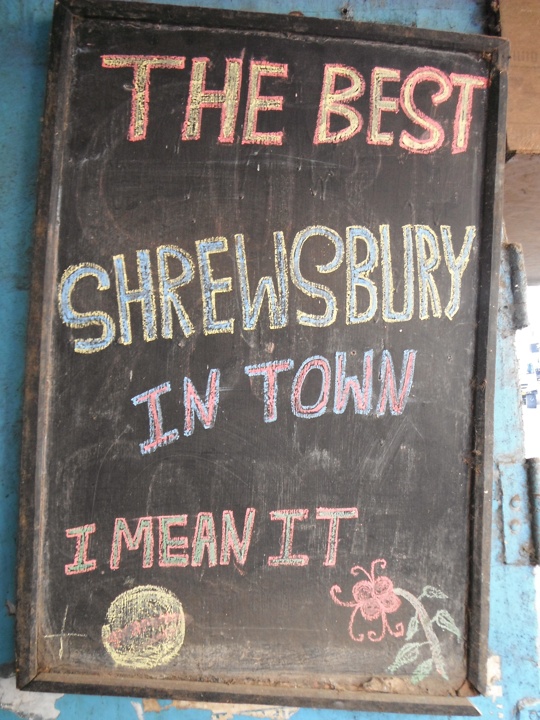 THE BEST
SHREWSBURY
IN TOWN
I MEAN IT